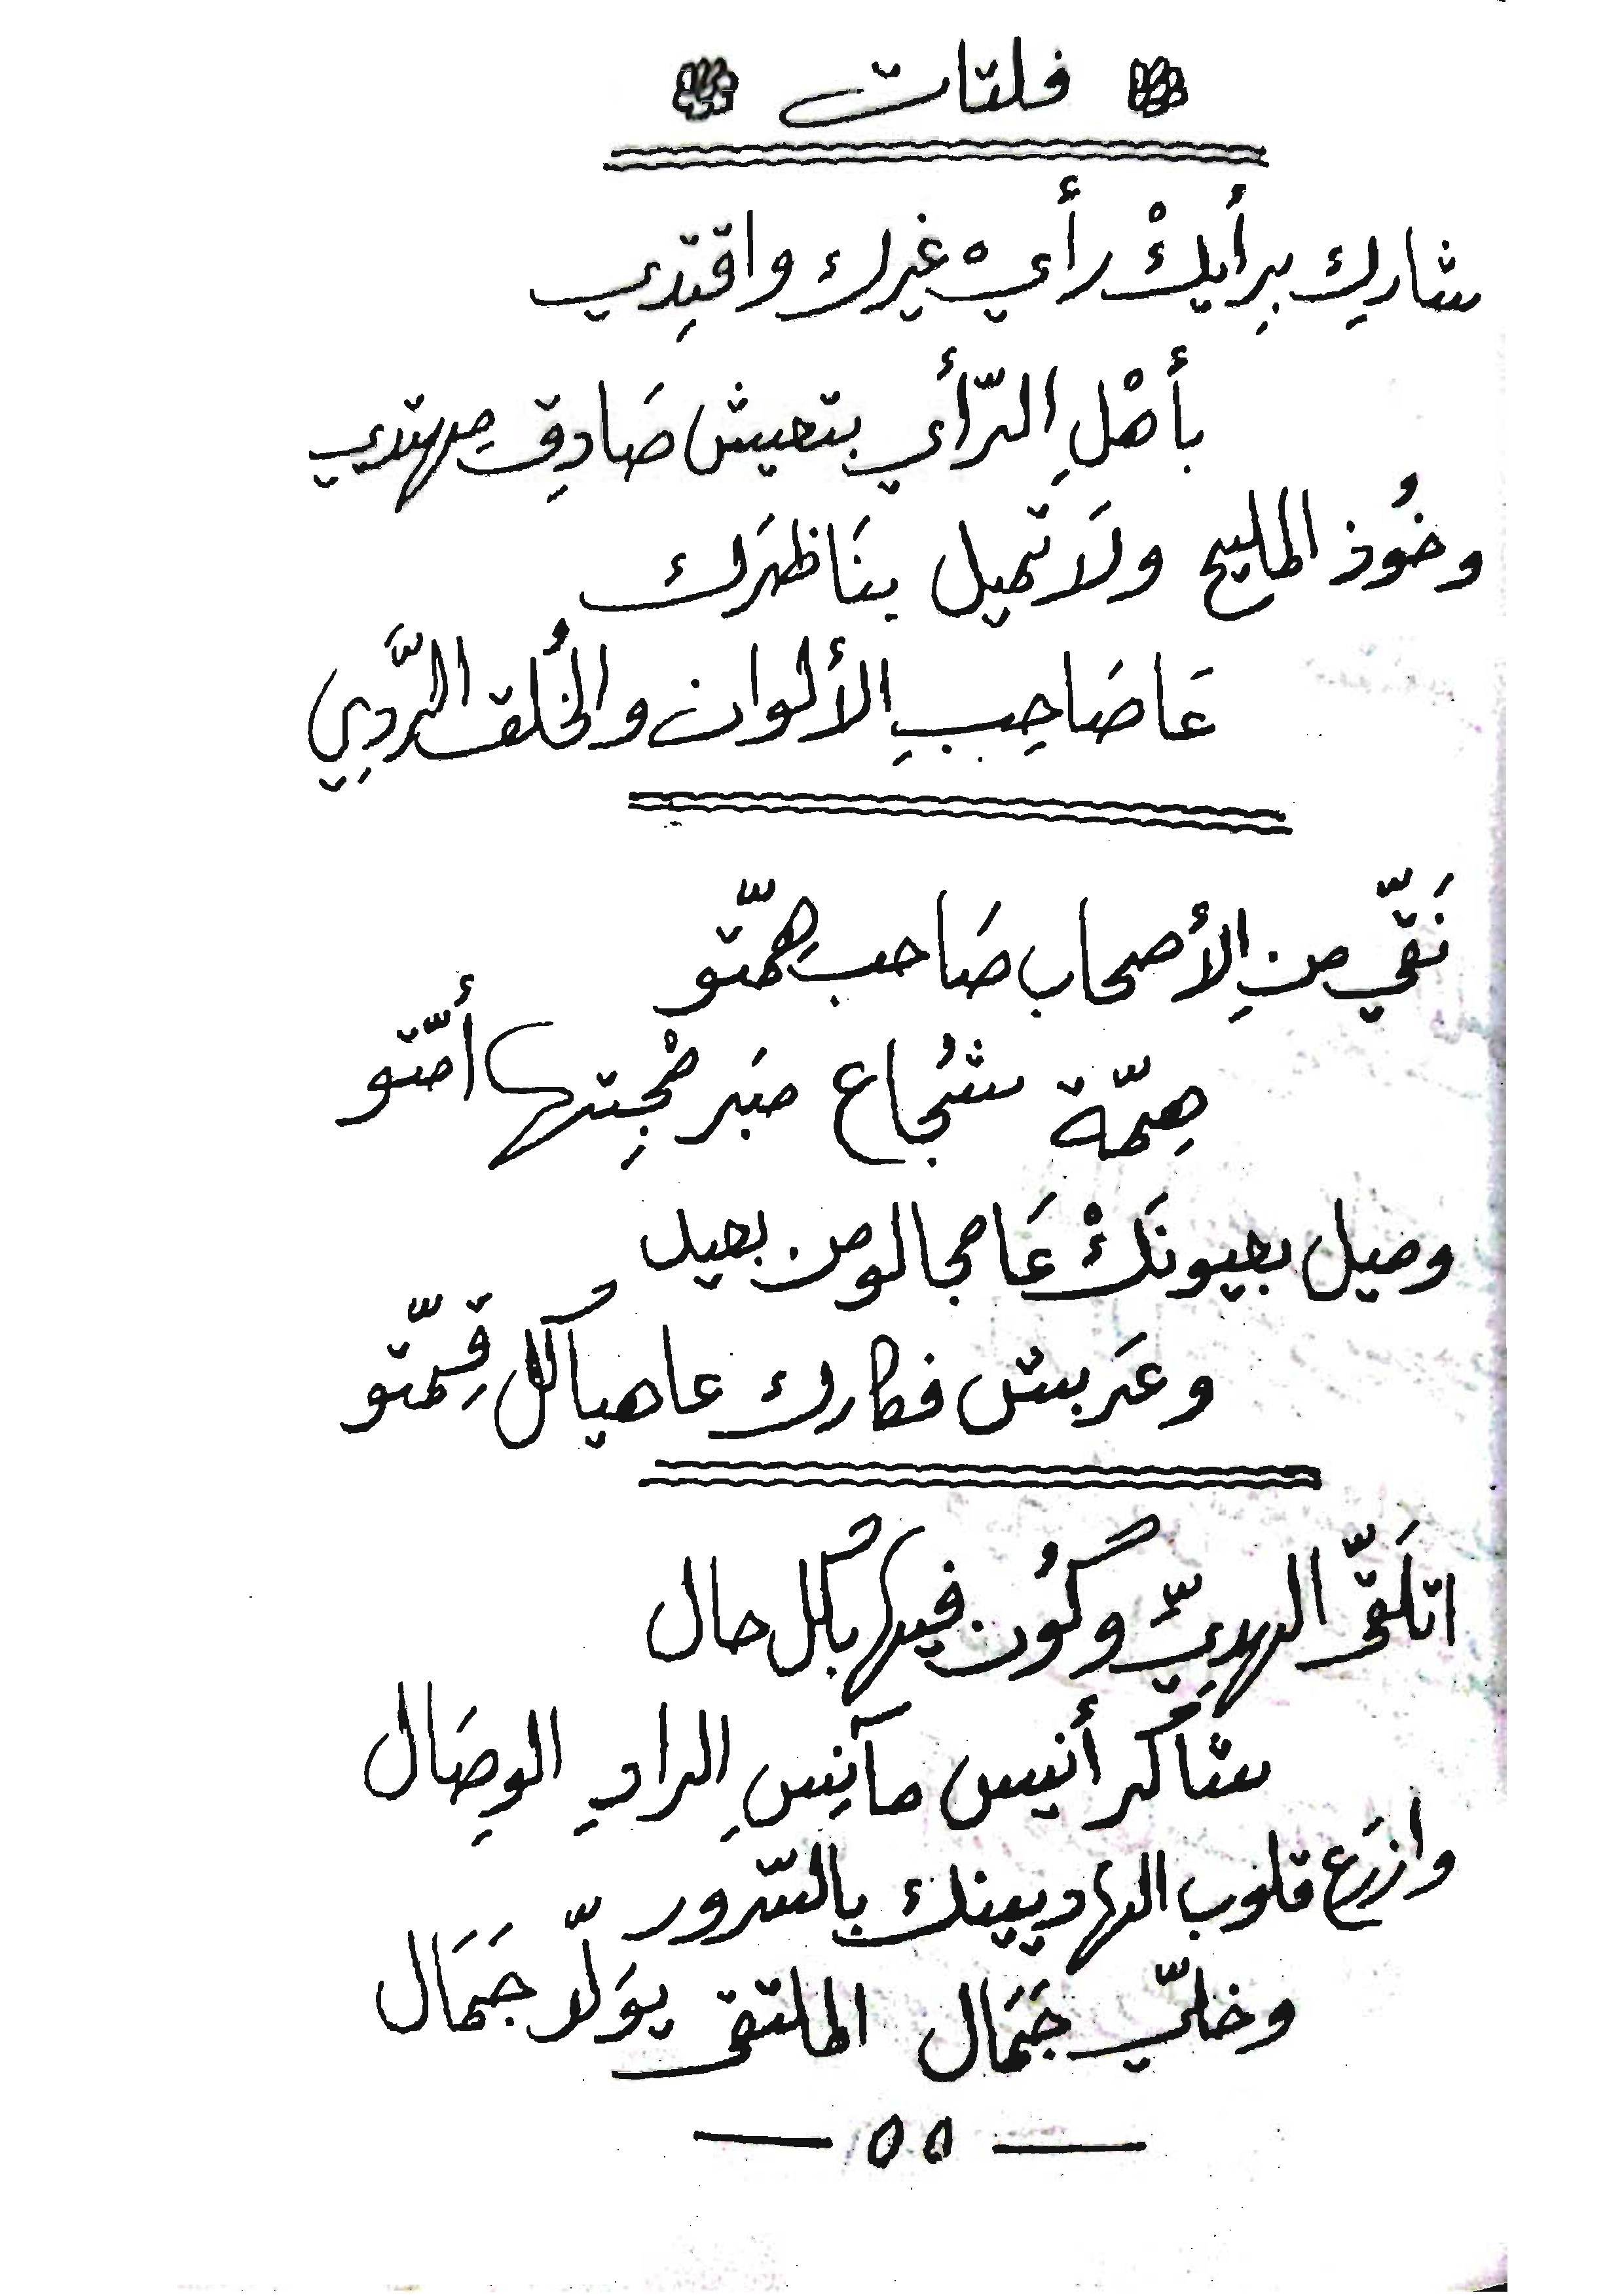 فلتات
شارِك بِرأيكْ رأي غيرك واقتِدي
بأهْلِ الرّأي بتعيش صَادِق مِهتدي
وخُوذ المليح ولَا تميل بنَاظهَرك
عَا صَاحِبِ الألوان والخُلق الرَّدِي
نَقّي منِ الأصحاب صَاحب هِمّتو
هِمّة شُجاع مَبَر مْجِتها أمّتو
وميل بعيونَكْ عَا مجالو من بعيد
وعَربش فكارك عا هياكل قِمّتو
اتلَقّى الهديِّ وكُون فيها بكُل حال
شَاكر أنيس مآنِسِ الرادِ الوِصَال
وازرَع قلوب الهاديينك بالسّرور
وخلّي جَمَال الملتقى يوَلّد جَمَال
— ٥٥ —